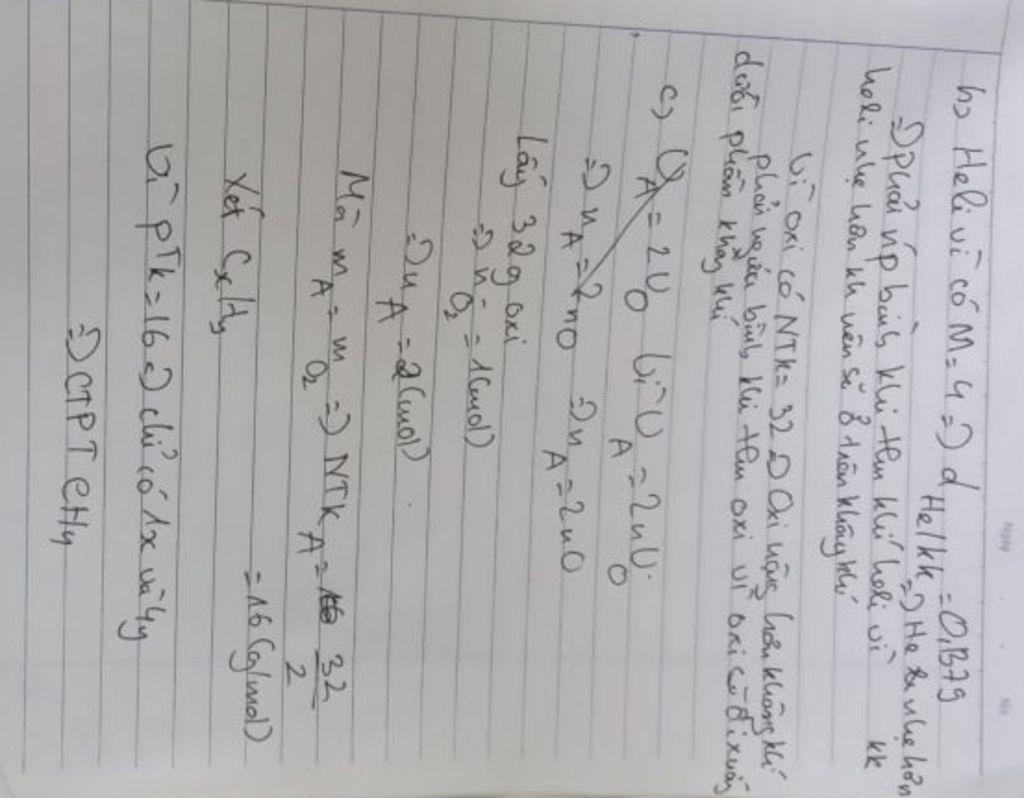 b) Heli vì có M = 4 => d He/kk = 0,1379
=> phải úp bình khi thu khí heli vì He nhẹ hơn kk
heli nhẹ hơn kk nên sẽ ở trên không khí
Vì oxi có NTK = 32 => Oxi nặng hơn không khí
phải ngửa bình khi thu oxi vì oxi sẽ đi xuống
dưới phần không khí
c) V A = 2V O Vì V A = 2 n V O
=> n A = 2 n O => n A = 2 n O
Lấy 32g oxi
=> n O2 = 1 (mol)
=> n A = 2 (mol)
Mà m A = m O2 => NTK A = 32/2
= 16 (g/mol)
Xét CxHy
Vì PTK = 16 => chỉ có 1x và 4y
=> CTPT CH4